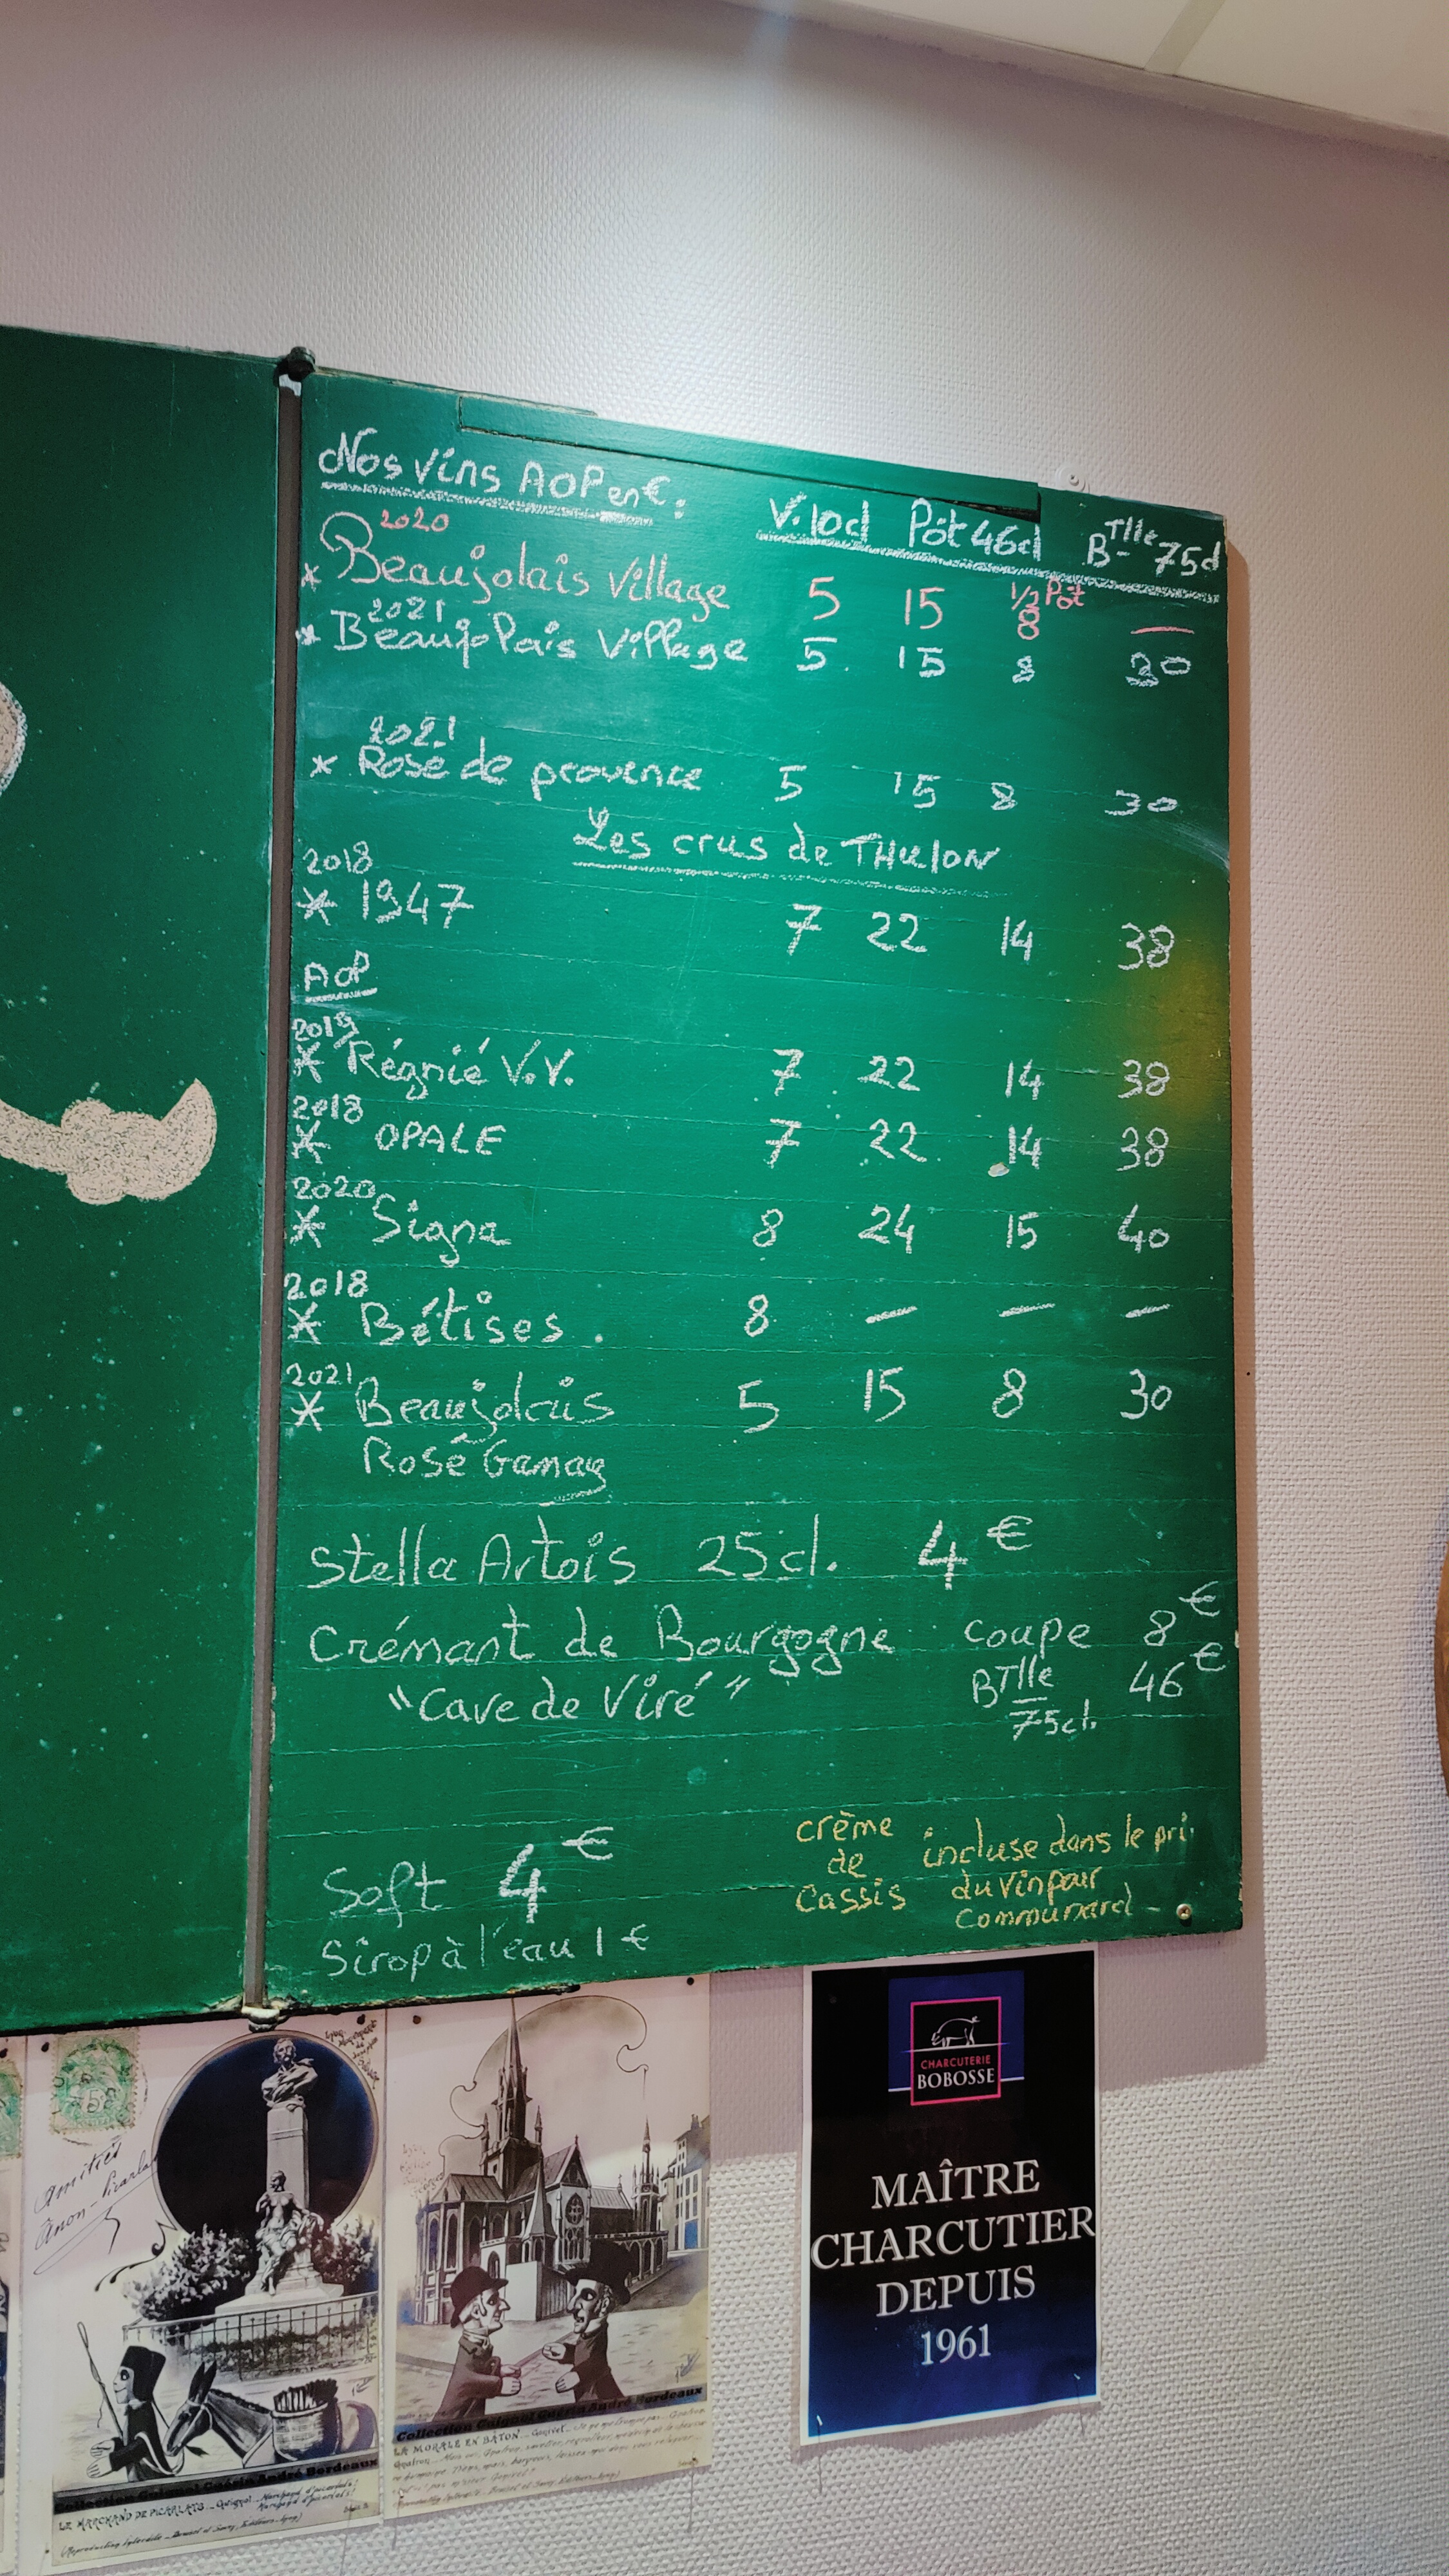 Nos vins AOP en €: V. 10cl Pôt 46cl BTlle 75cl
2020
* Beaujolais Village 5 15 1/2 Pôt 8 —
2021
* Beaujolais Village 5 15 8 30
2021
* Rosé de provence 5 15 8 30
Les crus de THulON
2018
* 1947 7 22 14 38
AOP
2019
* Régnié V.V. 7 22 14 38
2018
* OPALE 7 22 14 38
2020
* Signa 8 24 15 40
2018
* Bétises. 8 — — —
2021
* Beaujolais 5 15 8 30
Rosé Gamay
Stella Artois 25cl. 4€
Crémant de Bourgogne coupe 8€
"Cave de Viré" BTlle 46€
75cl.
Soft 4€
Sirop à l'eau 1€
crème de Cassis
incluse dans le pri
du Vin pour
Communard -
amitiés
Collection Guignol Guérin André Bordeaux
LE MARCHAND DE PICARLATS
Collection Guignol Guérin André Bordeaux
LA MORALE EN BÂTON
CHARCUTERIE
BOBOSSE
MAÎTRE
CHARCUTIER
DEPUIS
1961